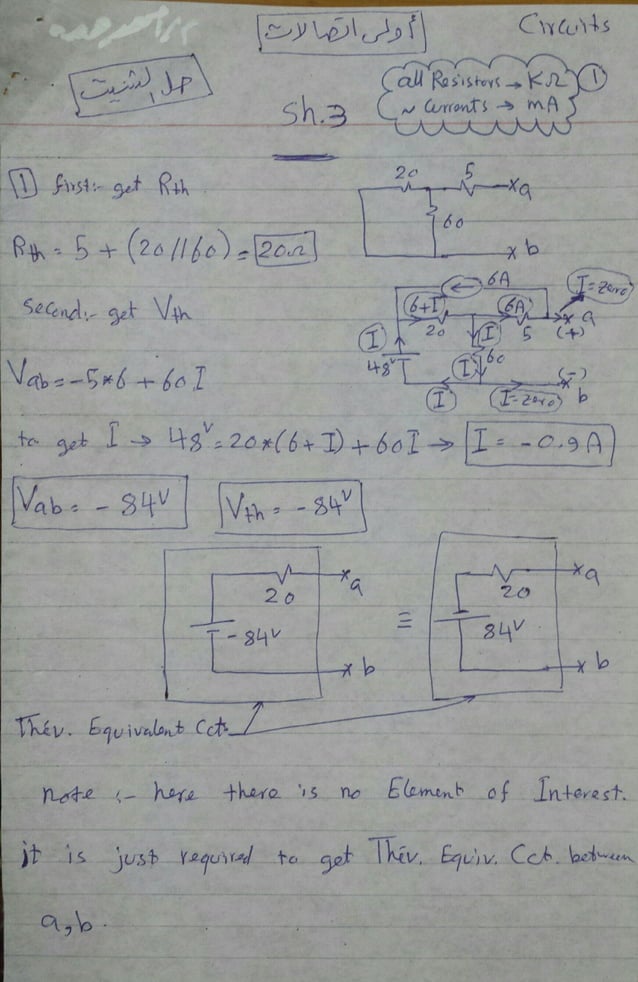 أولى اتصالات
Circuits
حل الشيت
all Resistors → KΩ
~ Currents → mA
1
Sh.3
1 first:- get Rth
20 5
a
60
b
Rth = 5 + (20//60) = 20Ω
6A
I=zero
second:- get Vth
6+I 6A
20 5 a
(+)
I I
48V I 60
(-)
I I=zero b
Vab = -5*6 + 60 I
to get I → 48V = 20*(6+I) + 60I → I = -0.9 A
Vab = -84V Vth = -84V
20 a
-84V
b
≡
20 a
84V
b
Thév. Equivalent Cct.
note :- here there is no Element of Interest.
it is just required to get Thév. Equiv. Cct. between
a,b.